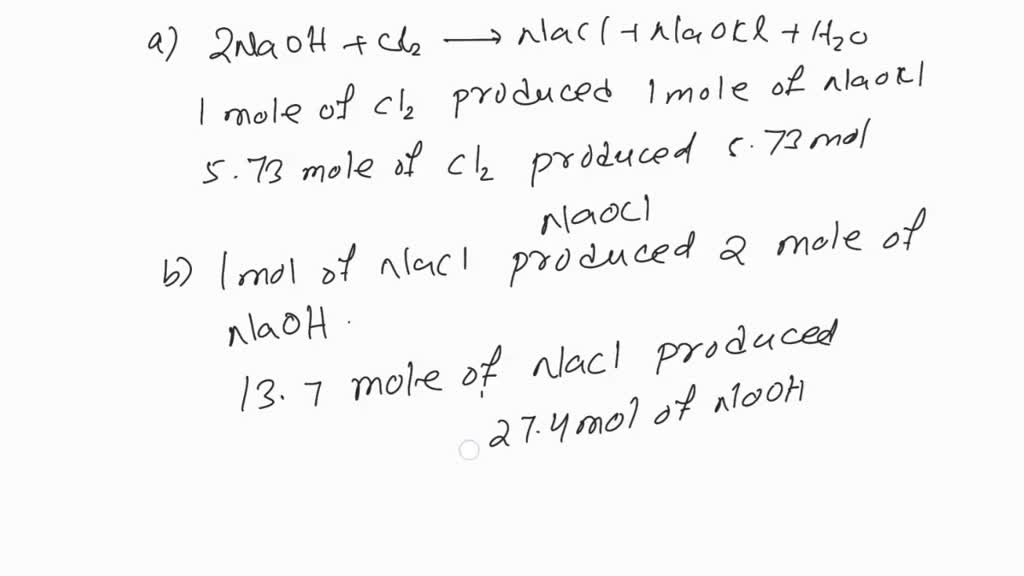 a) 2NaOH + Cl₂ → NaCl + NaOCl + H₂O
1 mole of Cl₂ produced 1 mole of NaOCl
5.73 mole of Cl₂ produced 5.73 mol
NaOCl
b) 1 mol of NaCl produced 2 mole of
NaOH.
13.7 mole of NaCl produced
27.4 mol of NaOH